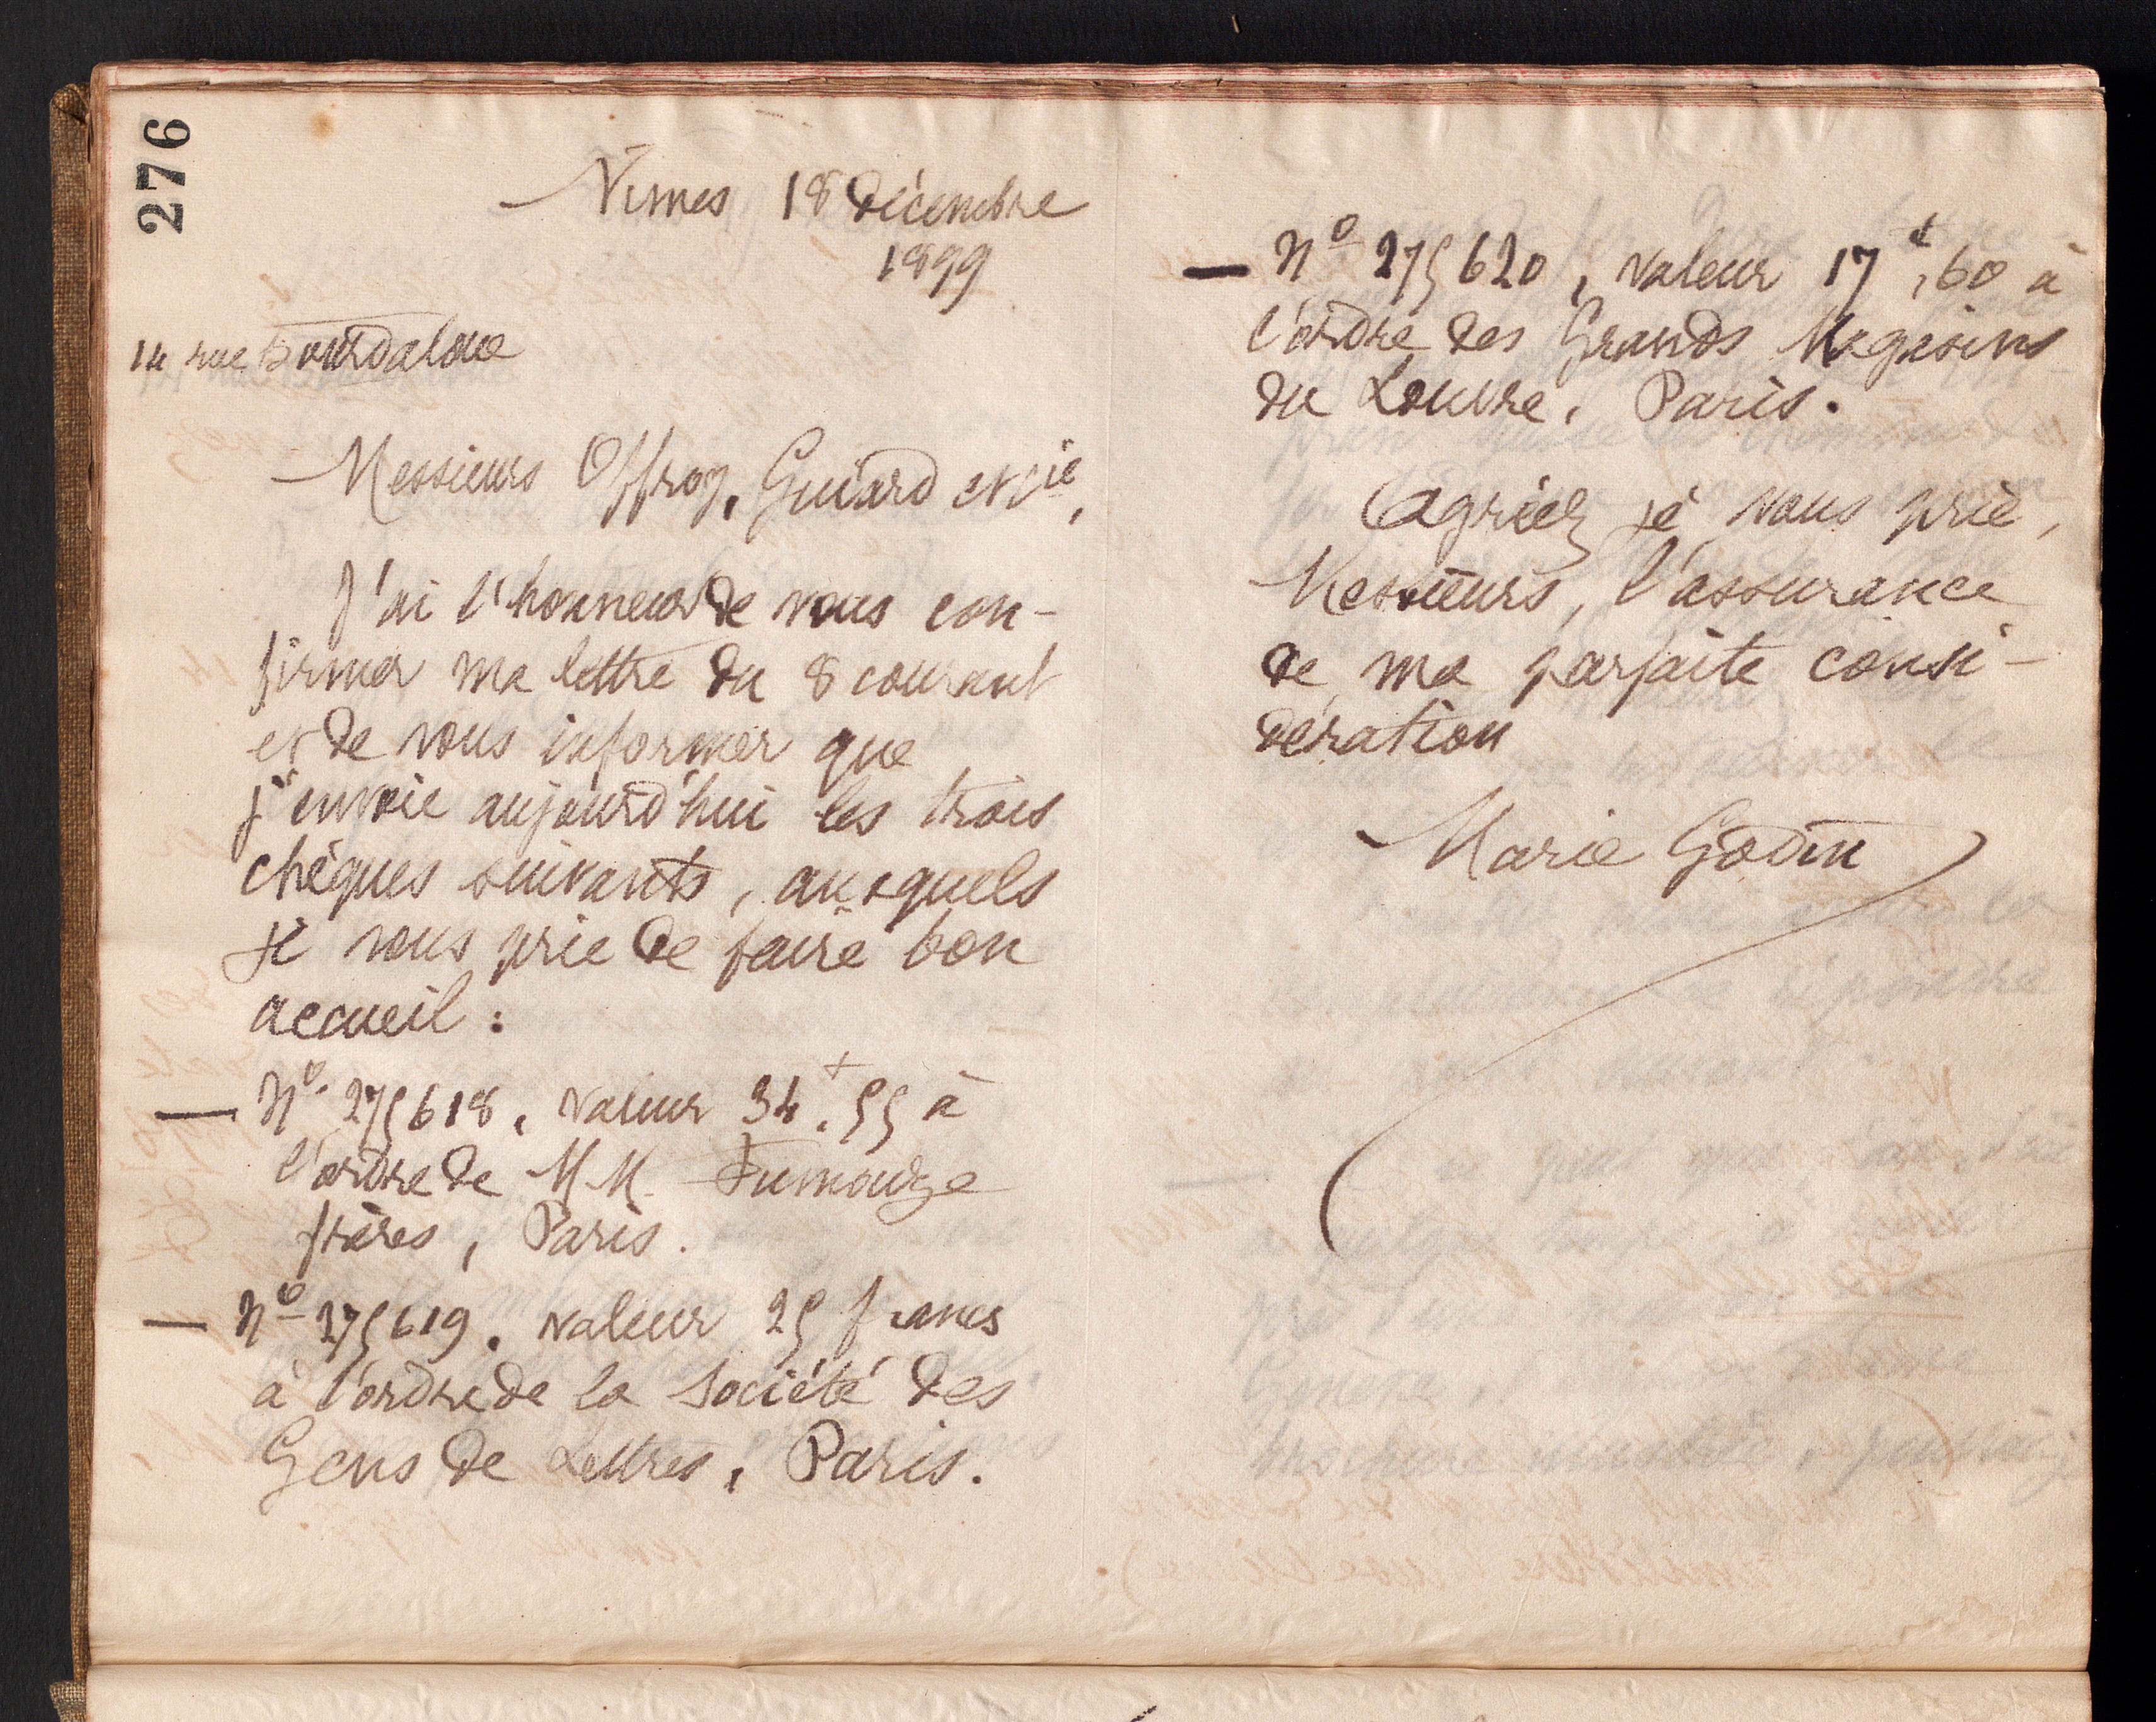 276
Nimes 18 décembre
1899
14 rue Bourdaloue
Messieurs Offroy, Guiard et Cie,
J'ai l'honneur de vous con-
firmer ma lettre du 8 courant
et de vous informer que
j'envoie aujourd'hui les trois
chèques suivants, auxquels
je vous prie de faire bon
accueil :
— No 275618, valeur 34f.55 à
l'ordre de MM. Fumouze
frères, Paris.
— No 275619, valeur 25 francs
à l'ordre de la Société des
Gens de Lettres, Paris.
— No 275620, valeur 17f,60 à
l'ordre des Grands Magasins
du Louvre, Paris.
Agréez je vous prie,
Messieurs, l'assurance
de ma parfaite consi-
dération
Marie Godin